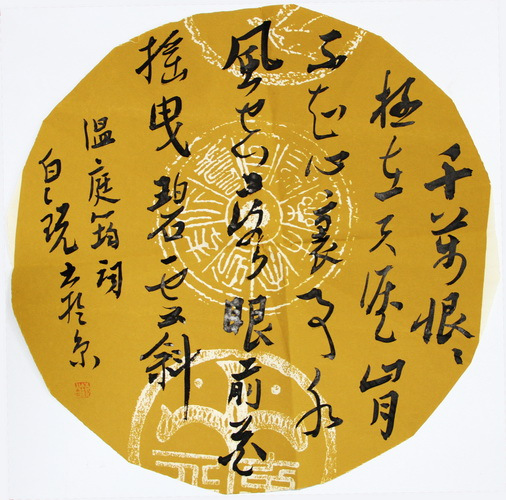 千萬恨〻
极在天涯山月
不知心裏事水
風空落眼前花
摇曳碧雲斜
温庭筠詞
書於京